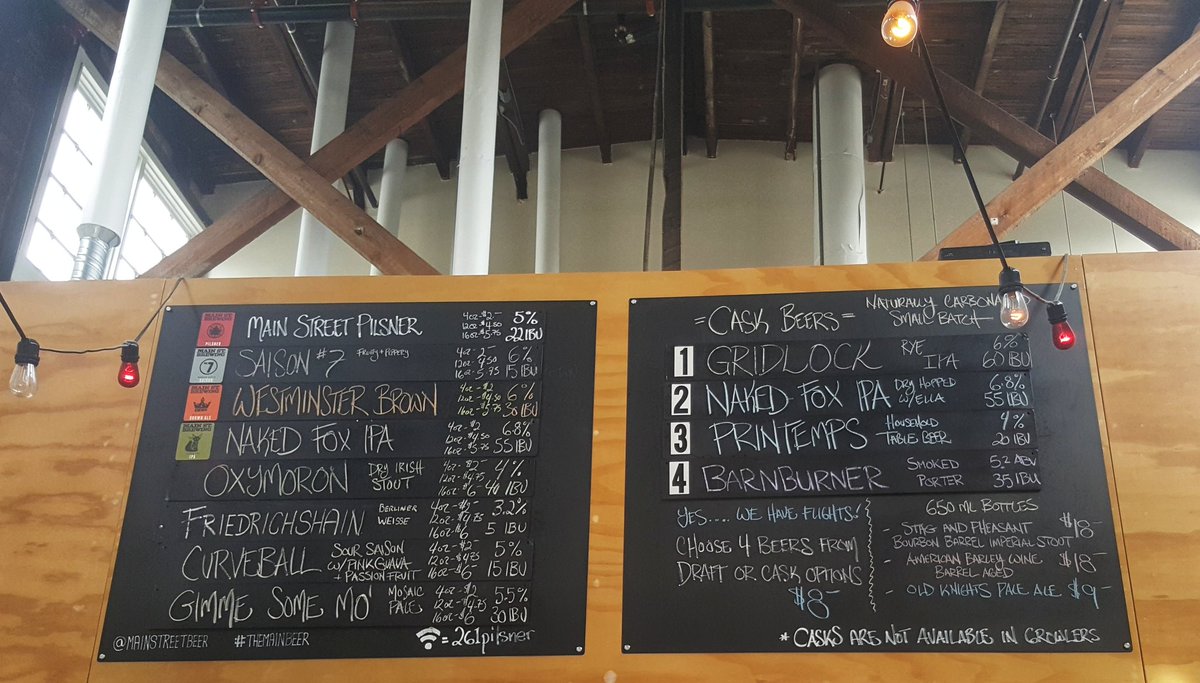 MAIN ST.
BREWING
PILSNER
MAIN STREET PILSNER
4oz-$2-
12oz-$4.50
16oz-$5.75
5%
22 IBU
MAIN ST.
BREWING
7
SAISON
SAISON #7
FRUITY + PEPPERY
4oz-2-
12oz-4.50
16oz-5.75
6%
15 IBU
MAIN ST.
BREWING
BROWN ALE
WESTMINSTER BROWN
4oz-$2
12oz-$4.50
16oz-$5.75
6%
30 IBU
MAIN ST.
BREWING
IPA
NAKED FOX IPA
4oz-$2
12oz-$4.50
16oz-5.75
6.8%
55 IBU
OXYMORON
DRY IRISH
STOUT
4oz-$2-
12oz-$4.75
16oz-$6-
4%
40 IBU
FRIEDRICHSHAIN
BERLINER
WEISSE
4oz-$2-
12oz-$4.75
16oz-$6-
3.2%
5 IBU
CURVEBALL
SOUR SAISON
W/PINK GUAVA
+ PASSION FRUIT
4oz-$2-
12oz-$4.75
16oz-$6-
5%
15 IBU
GIMME SOME MO'
MOSAIC
PALE
4oz-$2-
12oz-$4.75
16oz-$6-
5.5%
30 IBU
@MAINSTREETBEER #THEMAINBEER
= 261pilsner
=CASK BEERS=
NATURALLY CARBONA
SMALL BATCH
1 GRIDLOCK
RYE
IPA
6%
60 IBU
2 NAKED FOX IPA
DRY HOPPED
W/ELLA
6.8%
55 IBU
3 PRINTEMPS
HOUSEHOLD
TABLE BEER
4%
20 IBU
4 BARNBURNER
SMOKED
PORTER
5.2 ABV
35 IBU
YES.... WE HAVE FLIGHTS!
CHOOSE 4 BEERS FROM
DRAFT OR CASK OPTIONS
$8-
650 ML BOTTLES
- STAG AND PHEASANT
BOURBON BARREL IMPERIAL STOUT
$18-
- AMERICAN BARLEY WINE
BARREL AGED
$18-
- OLD KNIGHTS PALE ALE $9-
* CASKS ARE NOT AVAILABLE IN GROWLERS